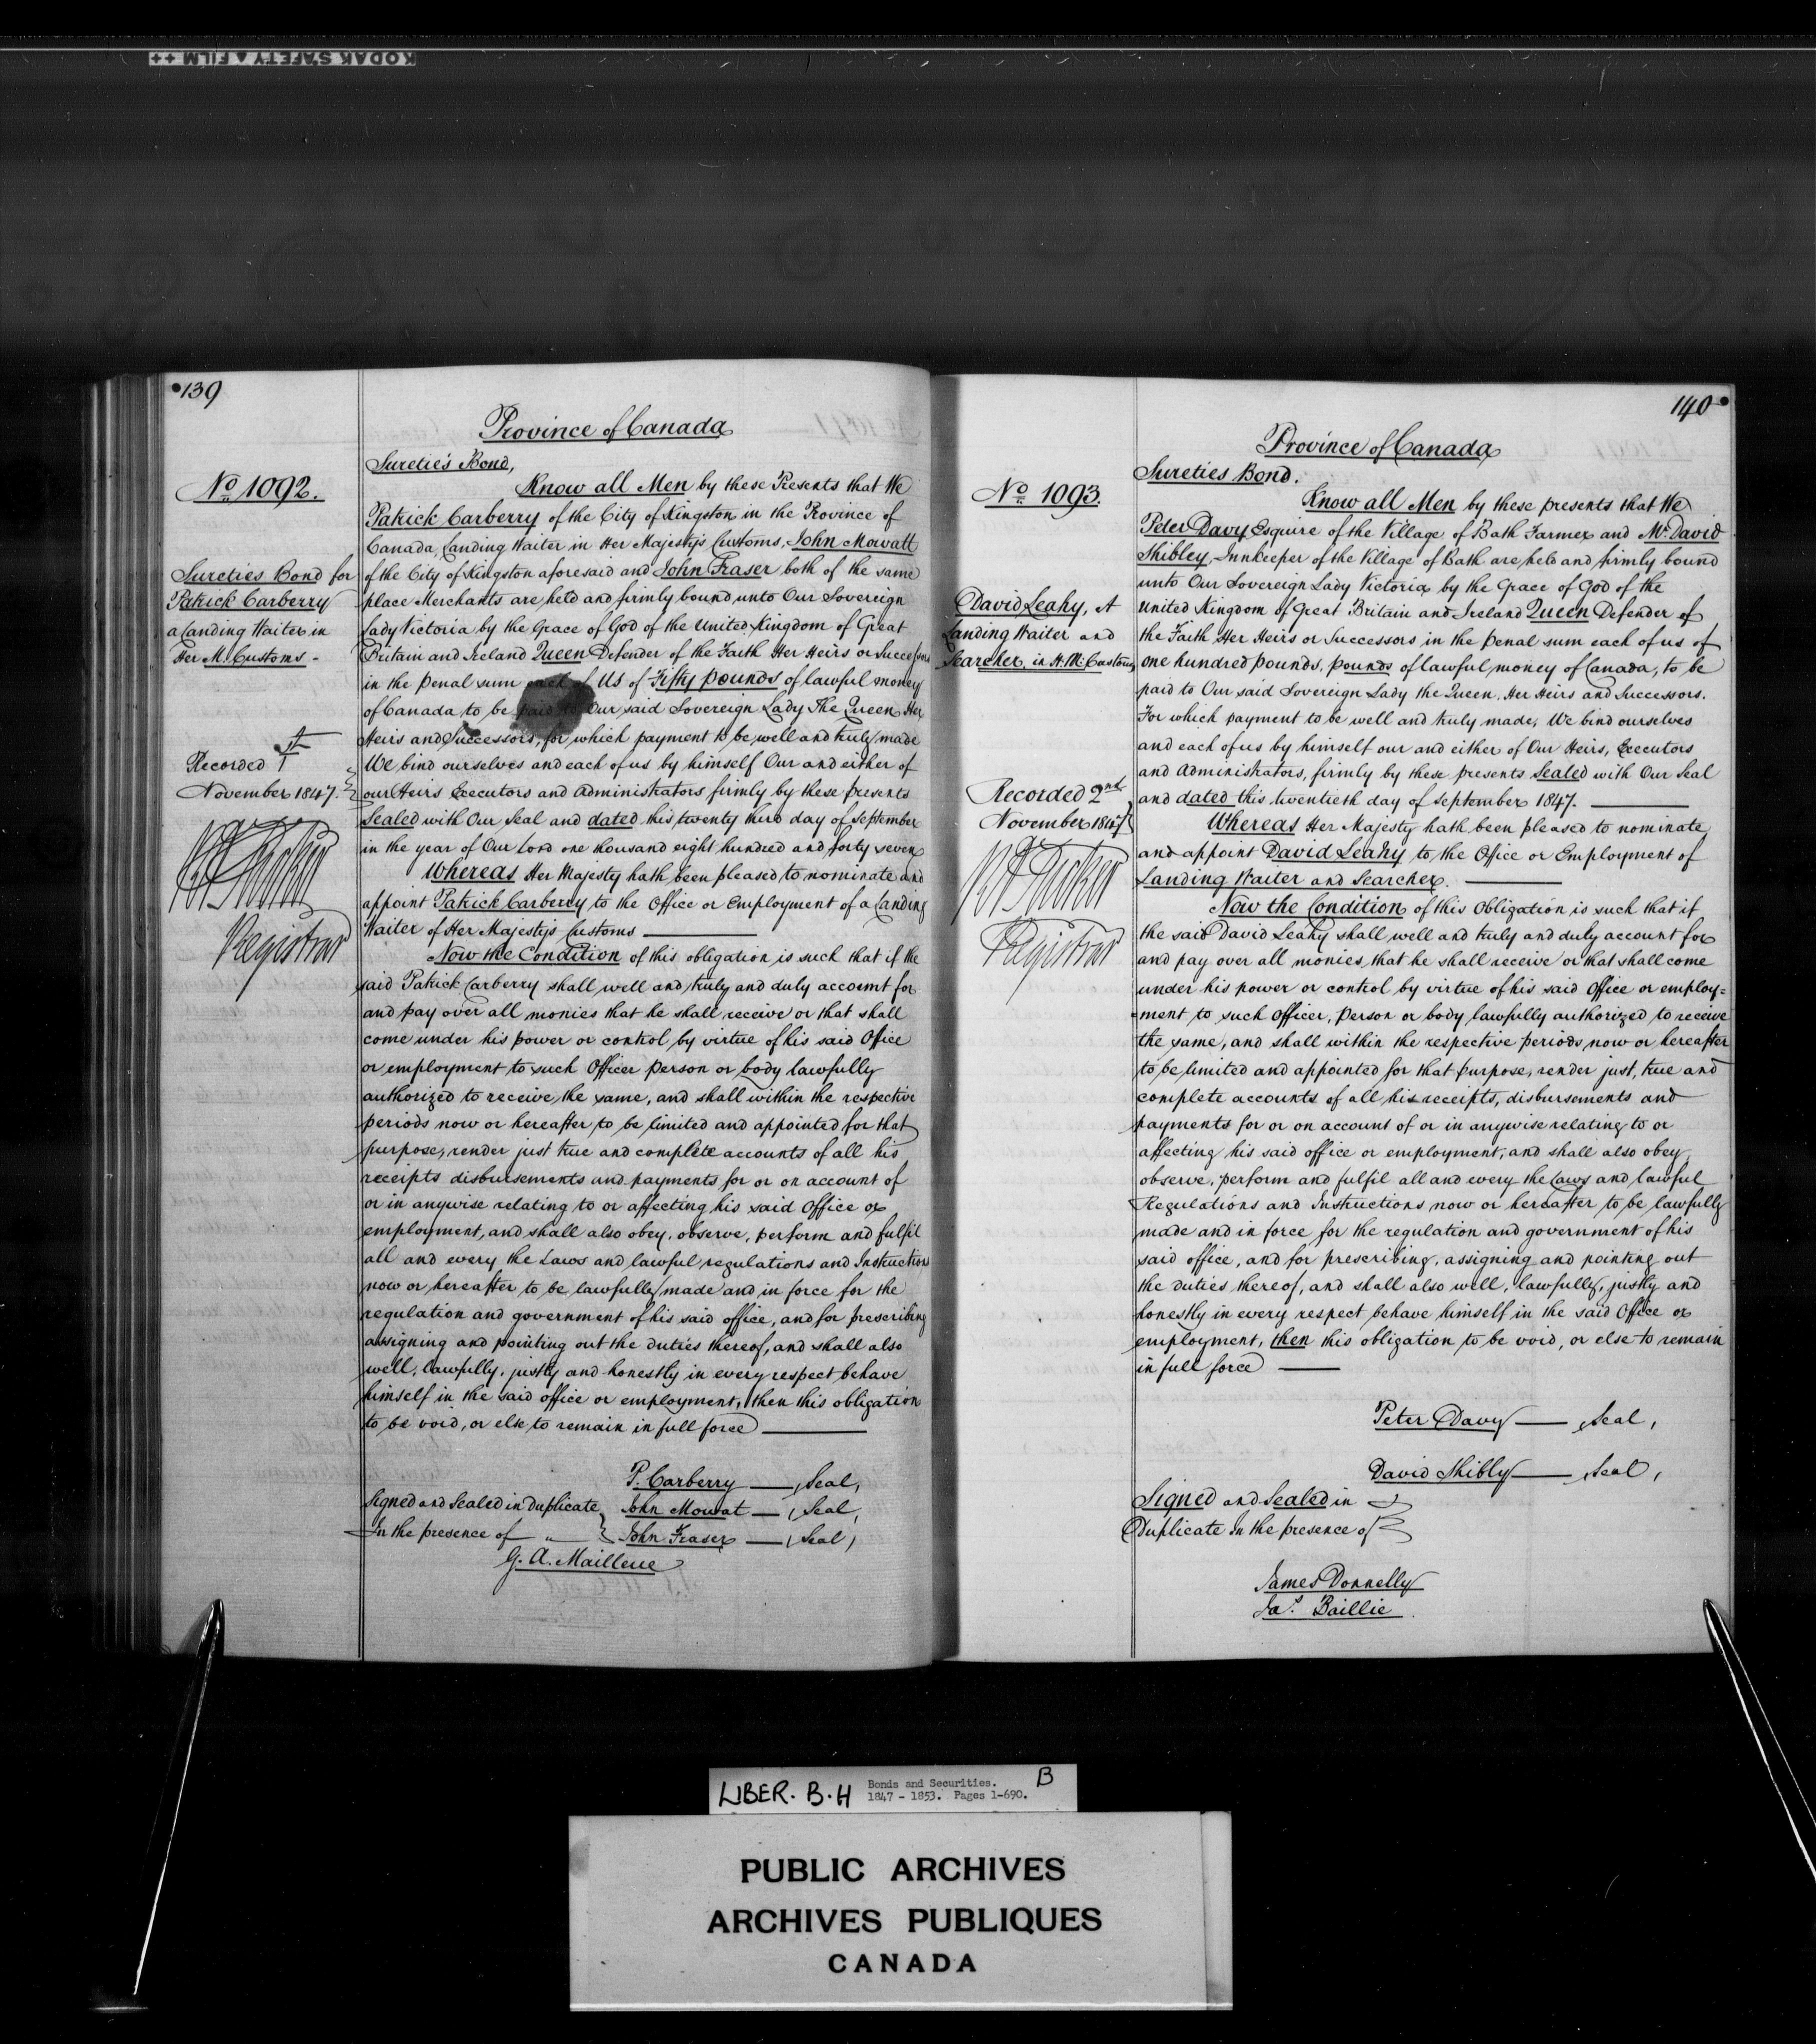 KODAK SAFETY ▲ FILM ++
139
Province of Canada
Suretie's Bond,
No 1092.
Know all Men by these Presents that We
Patrick Carberry of the City of Kingston in the Province of
Canada, Landing Waiter in Her Majesty's Customs, John Mowatt
of the City of Kingston aforesaid and John Fraser both of the same
place Merchants are held and firmly bound unto Our Sovereign
Lady Victoria by the Grace of God of the United Kingdom of Great
Britain and Ireland Queen Defender of the Faith Her Heirs or Successors
in the penal sum each of us of Fifty pounds of lawful money
of Canada to be paid to Our said Sovereign Lady The Queen Her
Heirs and Successors, for which payment to be well and truly made
We bind ourselves and each of us by himself Our and either of
our Heirs Executors and Administrators firmly by these presents
Sealed with Our Seal and dated this twenty third day of September
in the year of Our Lord one thousand eight hundred and forty seven
Whereas Her Majesty hath been pleased to nominate and
appoint Patrick Carberry to the Office or Employment of a Landing
Waiter of Her Majesty's Customs
Now the Condition of this obligation is such that if the
said Patrick Carberry shall well and truly and duly account for
and pay over all monies that he shall receive or that shall
come under his power or control by virtue of his said Office
or employment to such Officer person or body lawfully
authorized to receive the same, and shall within the respective
periods now or hereafter to be limited and appointed for that
purpose, render just true and complete accounts of all his
receipts disbursements and payments for or on account of
or in anywise relating to or affecting his said Office or
employment, and shall also obey, observe, perform and fulfil
all and every the Laws and lawful regulations and Instructions
now or hereafter to be lawfully made and in force for the
regulation and government of his said office, and for prescribing
assigning and pointing out the duties thereof, and shall also
well, lawfully, justly and honestly in every respect behave
himself in the said office or employment, then this obligation
to be void, or else to remain in full force
P. Carberry — Seal,
Signed and Sealed in Duplicate John Mowat — Seal,
In the presence of „ John Fraser — Seal,
G. A. Mailleue
Sureties Bond for
Patrick Carberry
a Landing Waiter in
Her M. Customs -
Recorded 1st
November 1847.
Registrar
140
Province of Canada
Sureties Bond.
No 1093.
Know all Men by these presents that We
Peter Davy Esquire of the Village of Bath Farmer and Mr. David
Shibley, Innkeeper of the Village of Bath are held and firmly bound
unto Our Sovereign Lady Victoria by the Grace of God of the
United Kingdom of Great Britain and Ireland Queen Defender of
the Faith Her Heirs or Successors in the penal sum each of us of
one hundred pounds, pounds of lawful money of Canada, to be
paid to Our said Sovereign Lady the Queen, Her Heirs and Successors.
For which payment to be well and truly made, We bind ourselves
and each of us by himself our and either of Our Heirs, Executors
and Administrators, firmly by these presents Sealed with Our Seal
and dated this twentieth day of September 1847.
Whereas Her Majesty hath been pleased to nominate
and appoint David Leahy to the Office or Employment of
Landing Waiter and Searcher.
Now the Condition of this Obligation is such that if
the said David Leahy shall well and truly and duly account for
and pay over all monies, that he shall receive or that shall come
under his power or control by virtue of his said Office or employ=
ment to such Officer, Person or body lawfully authorized to receive
the same, and shall within the respective periods now or hereafter
to be limited and appointed for that purpose, render just, true and
complete accounts of all his receipts, disbursements and
payments for or on account of or in anywise relating to or
affecting his said office or employment, and shall also obey,
observe, perform and fulfil all and every the Laws and lawful
Regulations and Instructions now or hereafter to be lawfully
made and in force for the regulation and government of his
said office, and for prescribing, assigning and pointing out
the duties thereof, and shall also well, lawfully, justly and
honestly in every respect behave himself in the said Office or
employment, then this obligation to be void, or else to remain
in full force
Peter Davy — Seal,
David Shibly — Seal,
Signed and Sealed in
Duplicate In the presence of
James Donnelly
Jas. Baillie
David Leahy, A
Landing Waiter and
Searcher, in H. M. Customs
Recorded 2nd
November 1847
Registrar
LIBER. B.H Bonds and Securities. B
1847 - 1853. Pages 1-690.
PUBLIC ARCHIVES
ARCHIVES PUBLIQUES
CANADA